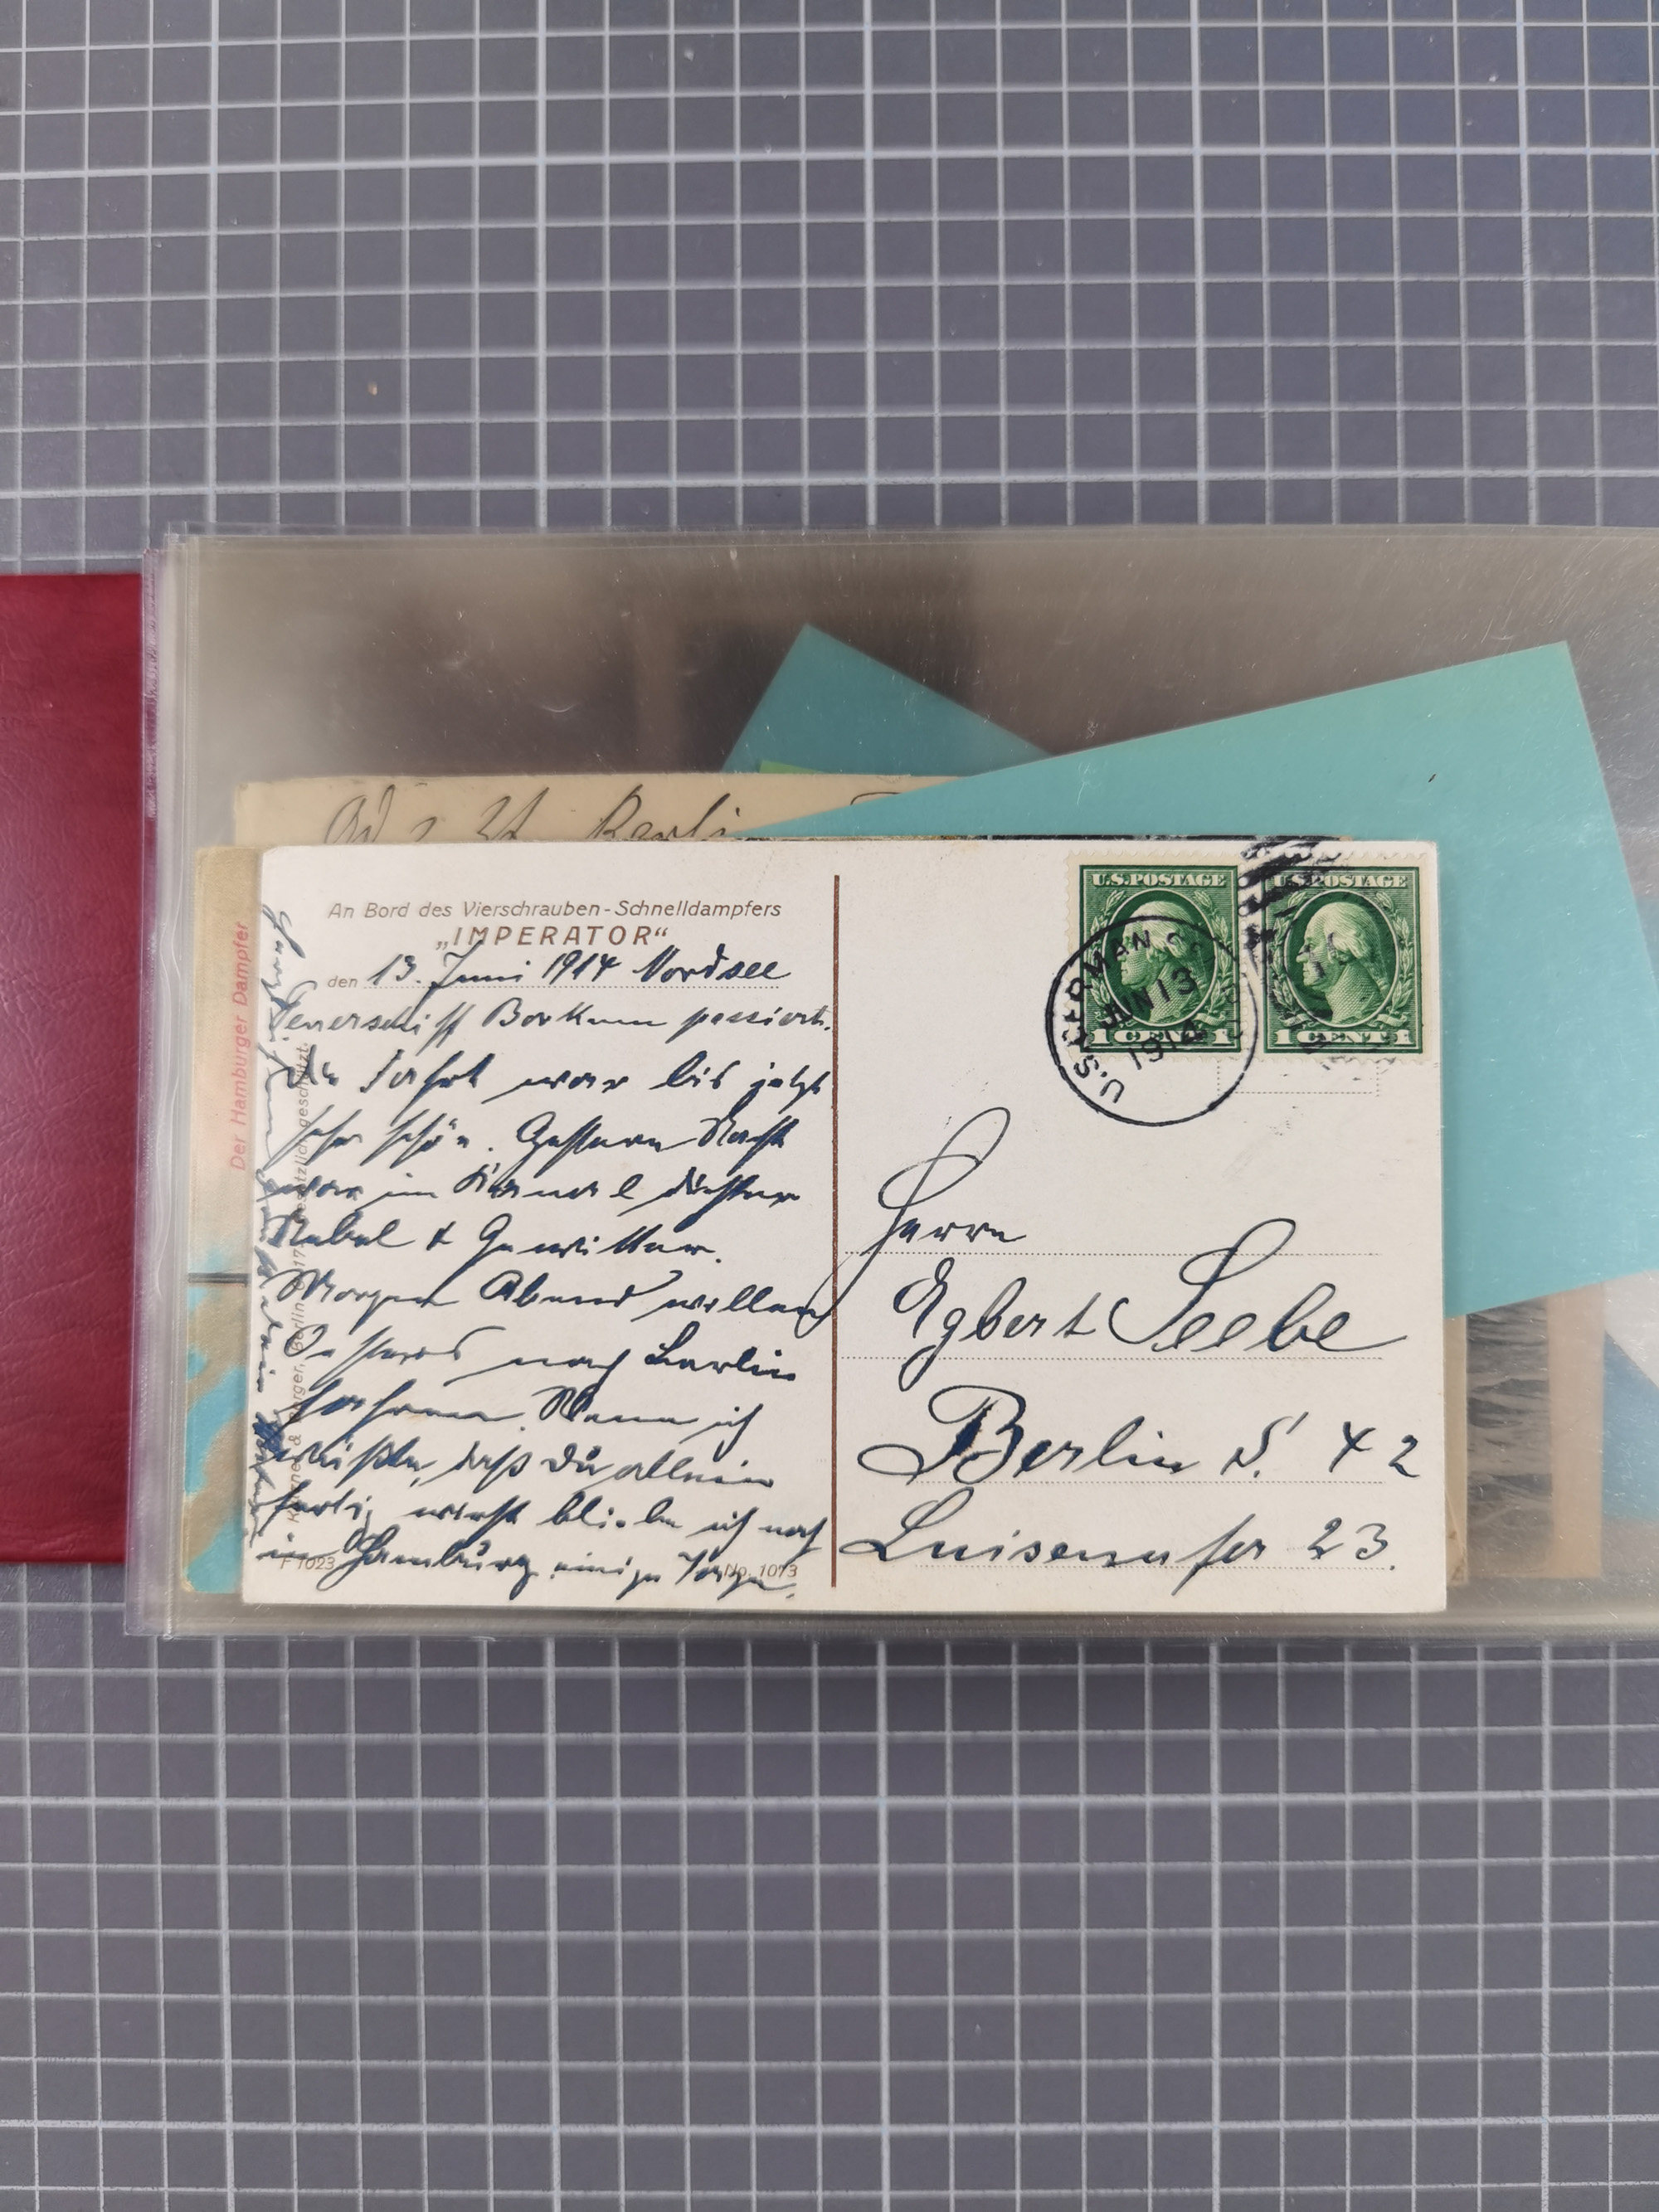 Der Hamburger Dampfer
An Bord des Vierschrauben-Schnelldampfers
„IMPERATOR“
den 13. Juni 1914 Nordsee
Feuerschiff Borkum passiert.
die Fahrt war bis jetzt
sehr schön. Gestern Nacht
war im Kanal dichter
Nebel & Gewitter.
Morgen Abend wollen
nach Berlin
fahren. Wenn ich
wüßte, daß Du allein
fertig wirst bliebe ich noch
in Hamburg einige Tage.
F 1023
No. 1073
gesetzlich geschützt.
U.S. POSTAGE
1 CENT 1
U.S. POSTAGE
1 CENT 1
U.S. GERMAN
JUN 13
1914
Herrn
Egbert Seebe
Berlin S. 42
Luisenufer 23.